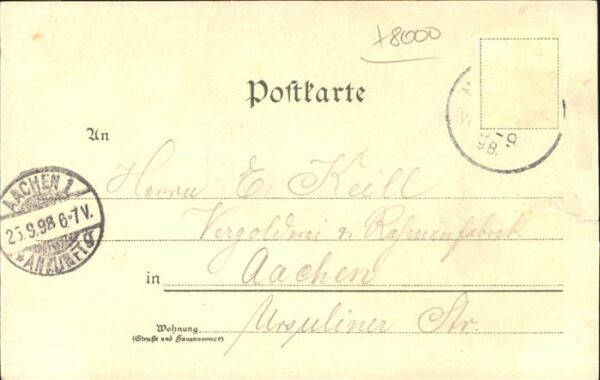 +8000
Postkarte
9-9
98.
An
Herrn E. Keill
AACHEN 1
25.9.98 6-7V.
*ANKUNFT
Vergolderei & Rahmenfabrik
in Aachen
Wohnung
(Straße und Hausnummer)
Ursuliner Str.